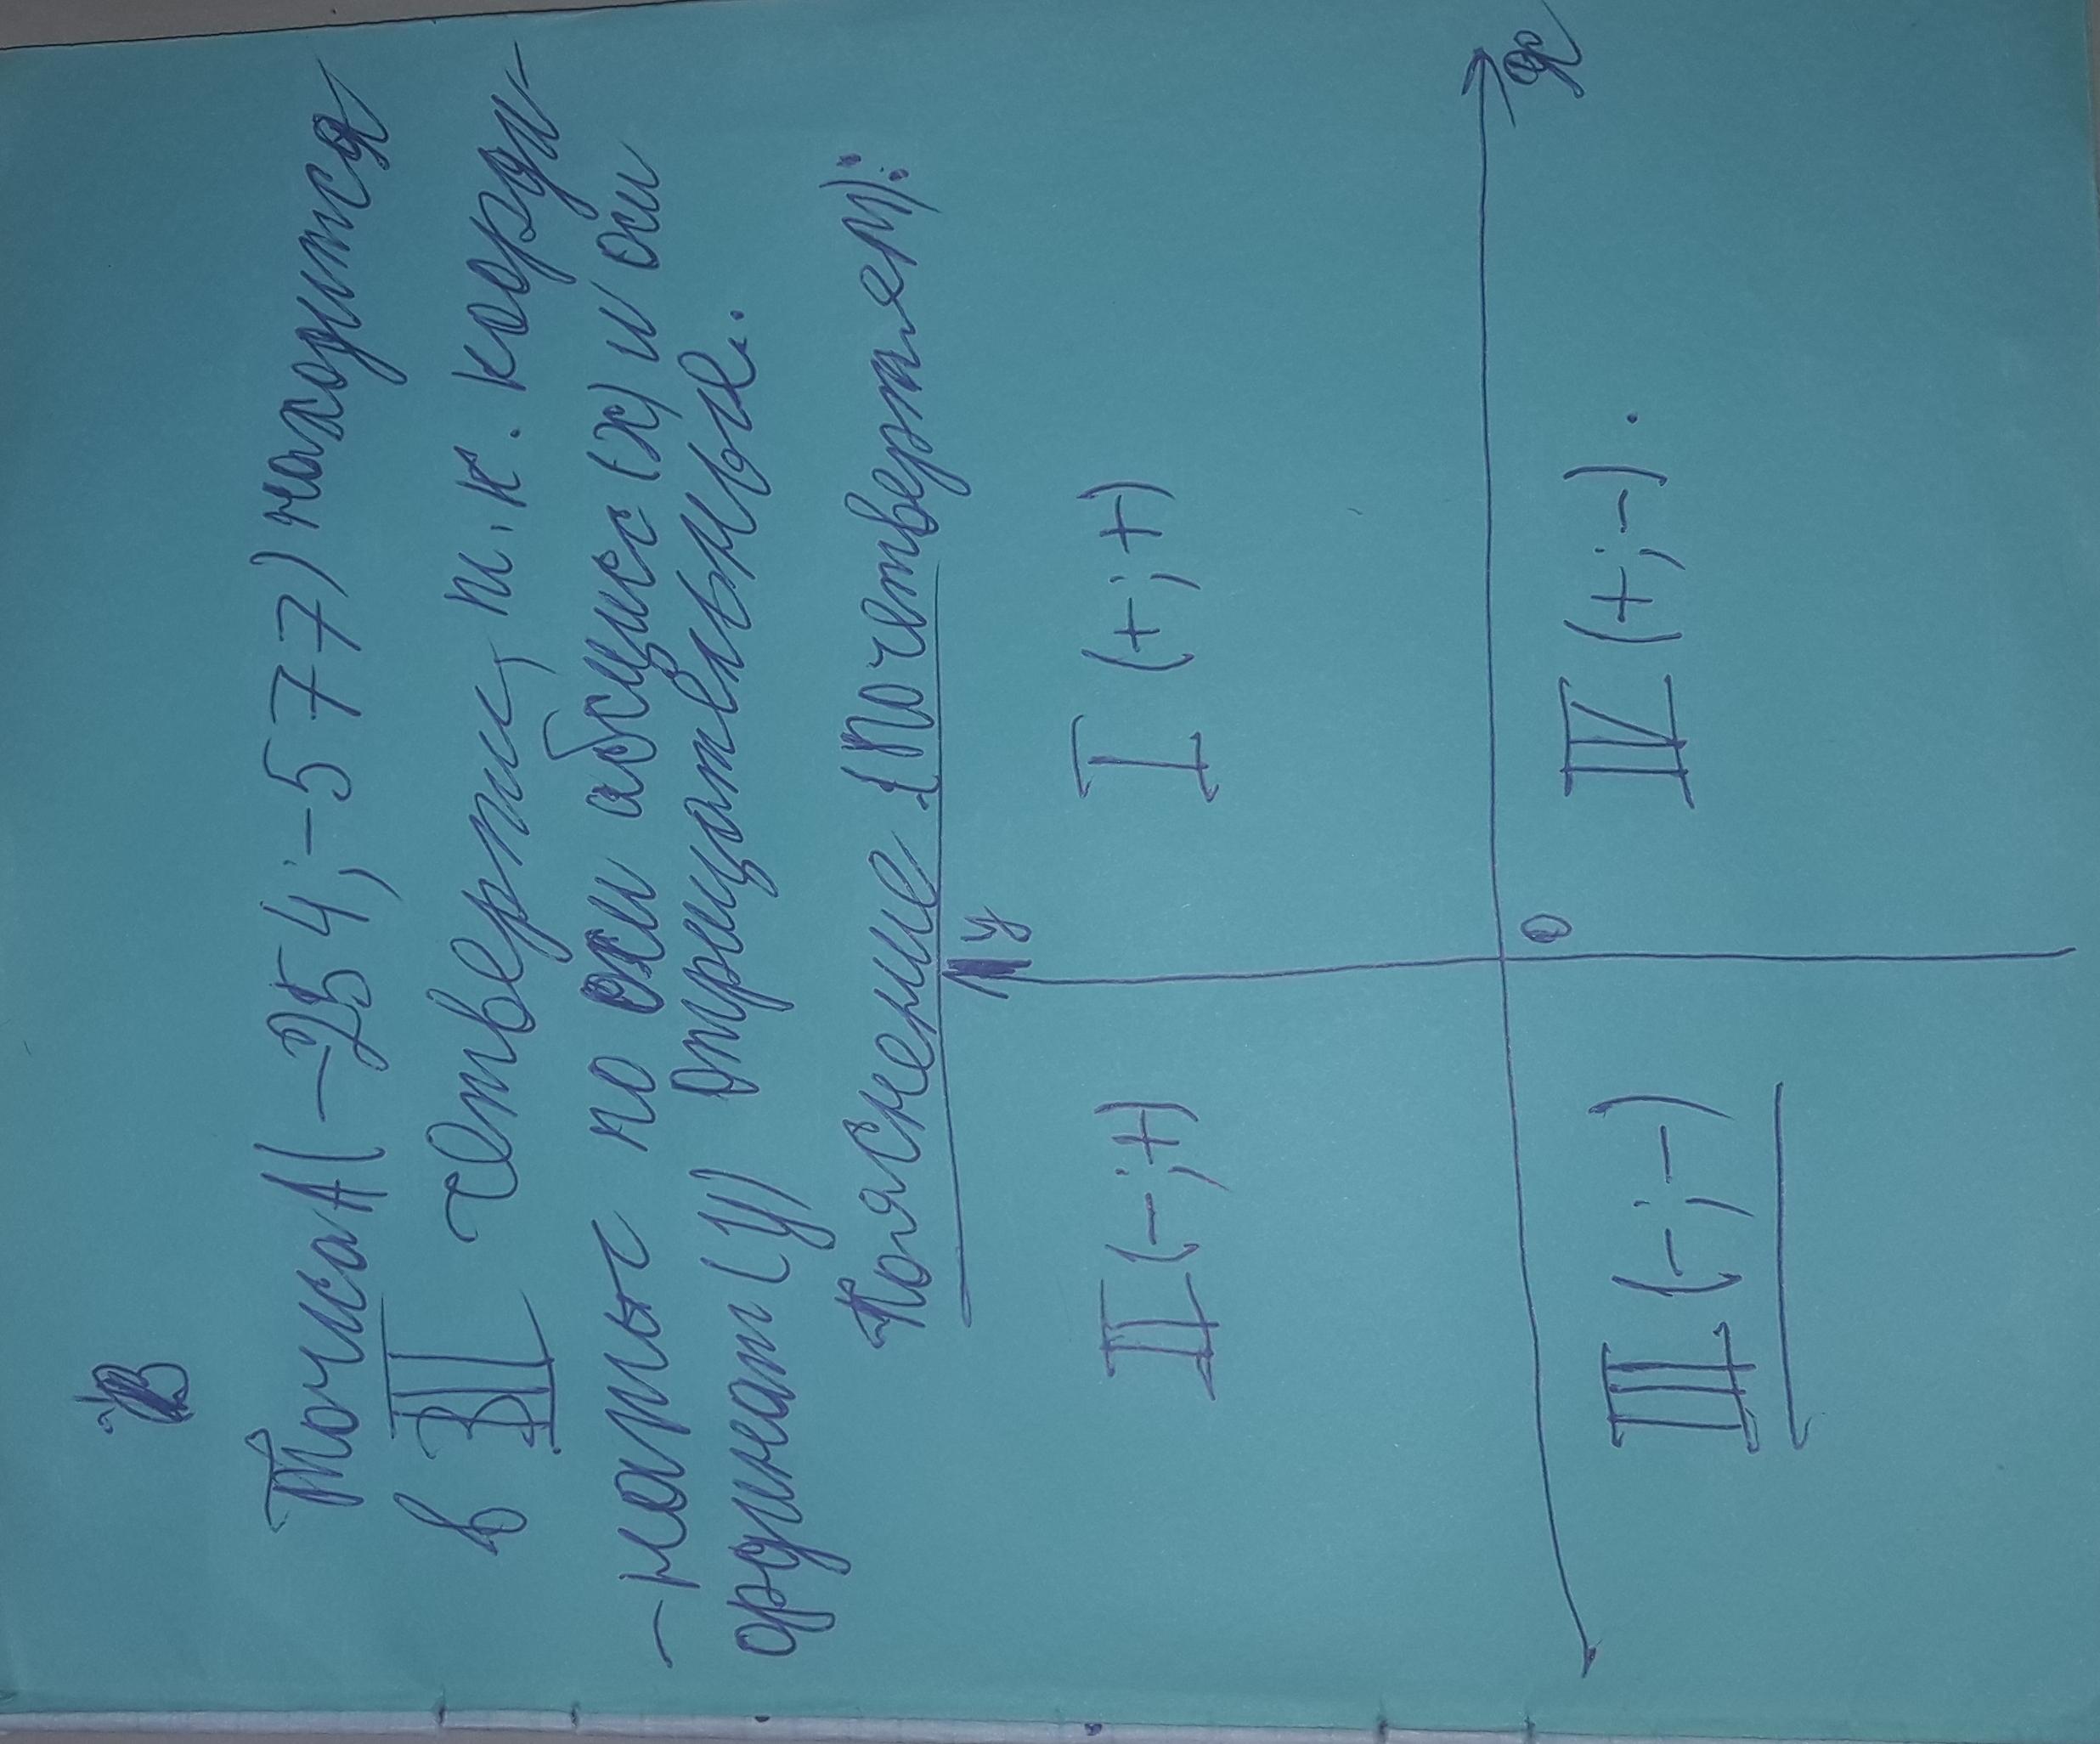 Точка А(-254;-577) находится
в III четверти, т.к. коорди-
-наты по оси абсцисс (x) и оси
ординат (y) отрицательные.
Пояснение (по четвертям):
y
II (-;+) I (+;+)
0 x
III (-;-) IV (+;-).